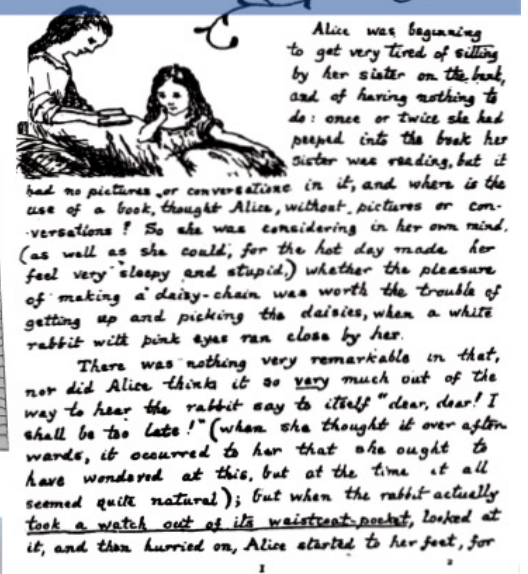 Alice was beginning
to get very tired of sitting
by her sister on the bank,
and of having nothing to
do: once or twice she had
peeped into the book her
sister was reading, but it
had no pictures or conversations in it, and where is the
use of a book, thought Alice, without pictures or con-
-versations? So she was considering in her own mind,
(as well as she could, for the hot day made her
feel very sleepy and stupid,) whether the pleasure
of making a daisy-chain was worth the trouble of
getting up and picking the daisies, when a white
rabbit with pink eyes ran close by her.
There was nothing very remarkable in that,
nor did Alice think it so very much out of the
way to hear the rabbit say to itself "dear, dear! I
shall be too late!" (when she thought it over after-
wards, it occurred to her that she ought to
have wondered at this, but at the time it all
seemed quite natural); but when the rabbit actually
took a watch out of its waistcoat-pocket, looked at
it, and then hurried on, Alice started to her feet, for
1